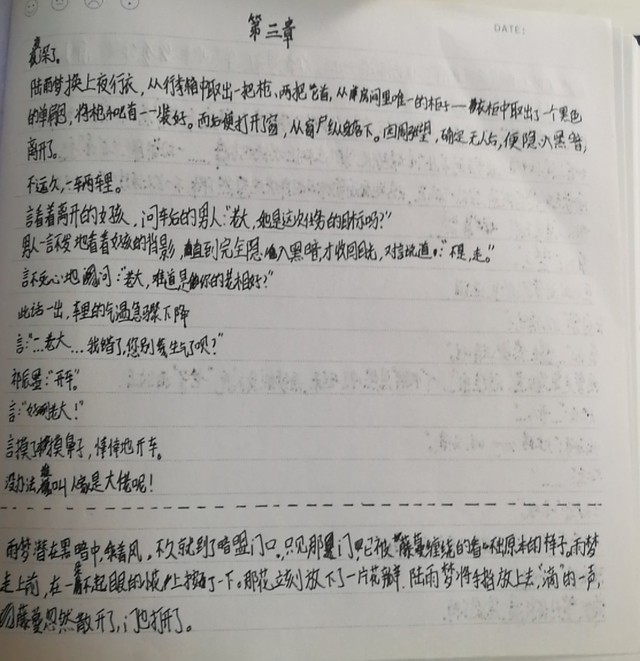 DATE:
第三章
夜深了。
陆雨梦换上夜行衣，从行李箱中取出一把枪、两把匕首，从房间里唯一的柜子——衣柜中取出了一个黑色
的单肩包，将枪和匕首一一装好。而后便打开了窗，从窗户纵身跃下。四周张望，确定无人后，便隐入黑暗，
离开了。
不远处，一车两车里。
言看着离开的女孩，问车后的男人："老大，她是这次任务的目标吗？"
男人一言不发地看着女孩的背影，直到完全隐入黑暗，才收回目光，对言说道："不是，走。"
言不死心地问："老大，难道是你的老相好？"
此话一出，车里的气温急骤下降
言："...老大...我错了，您别生气了呗？"
祁辰墨："开车。"
言："好嘞老大！"
言摸了摸鼻子，悻悻地开车。
没办法，谁叫人家是大佬呢！
雨梦潜在黑暗中，乘着风，不久就到了暗盟门口。只见那门已被藤蔓缠绕的看不出原本的样子。雨梦
走上前，在一不起眼的小花上按了一下。那花立刻放下了一片花瓣，陆雨梦将手指放上去，"滴"的一声，
藤蔓忽然散开了，门也打开了。